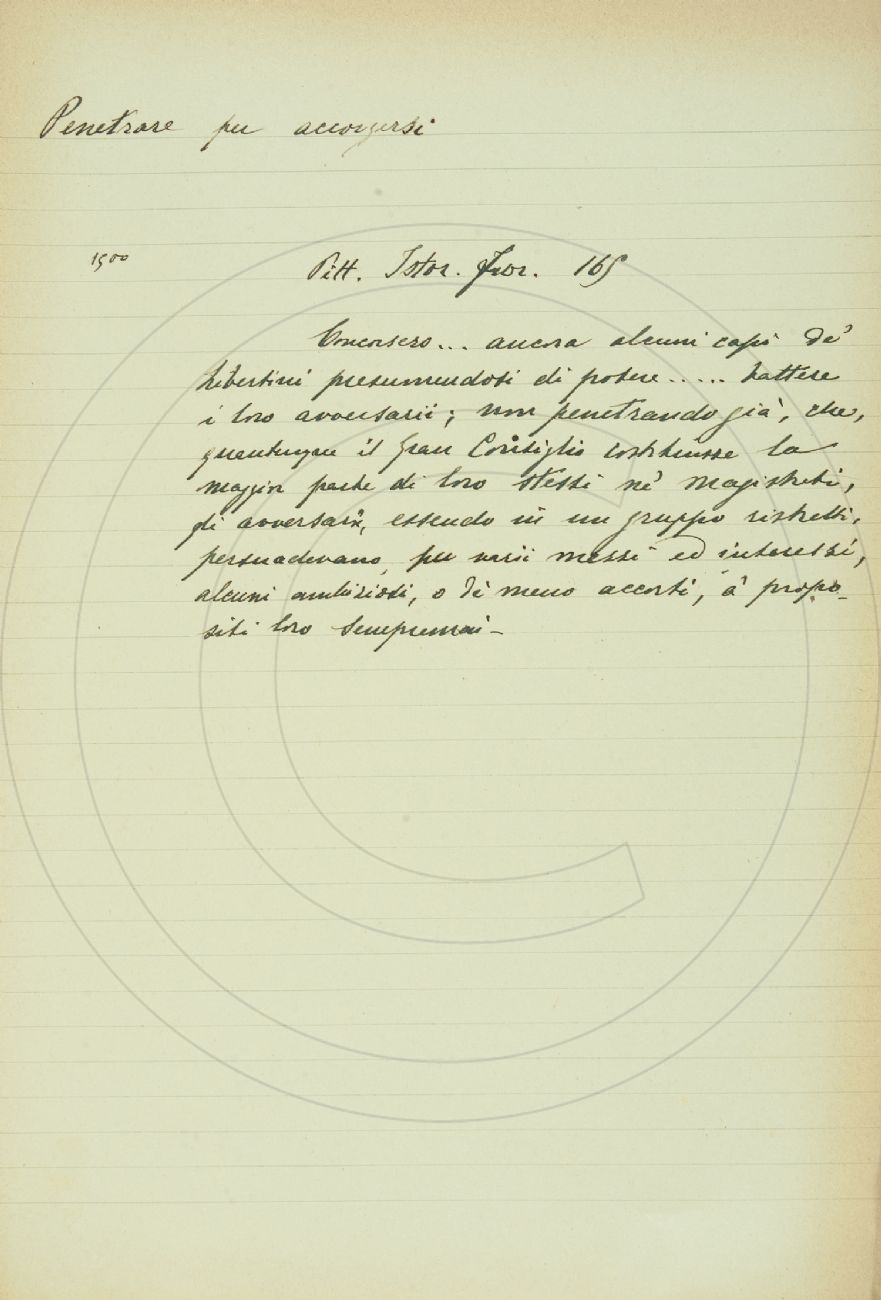 Penetrare per accorgersi
1500
Pitt. Istor. Fior. 165
Concorsero... ancora alcuni capi de'
libertini presumendosi di potere..... battere
i loro avversarii; non penetrando già, che,
quantunque il Gran Consiglio costituisse la
maggior parte di loro stessi ne' magistrati,
gli avversarii, essendo in un gruppo ristretti,
persuadevano, per varii mezzi ed interessi,
alcuni ambiziosi, o di meno accorti, a' propo-
siti loro sempremai -